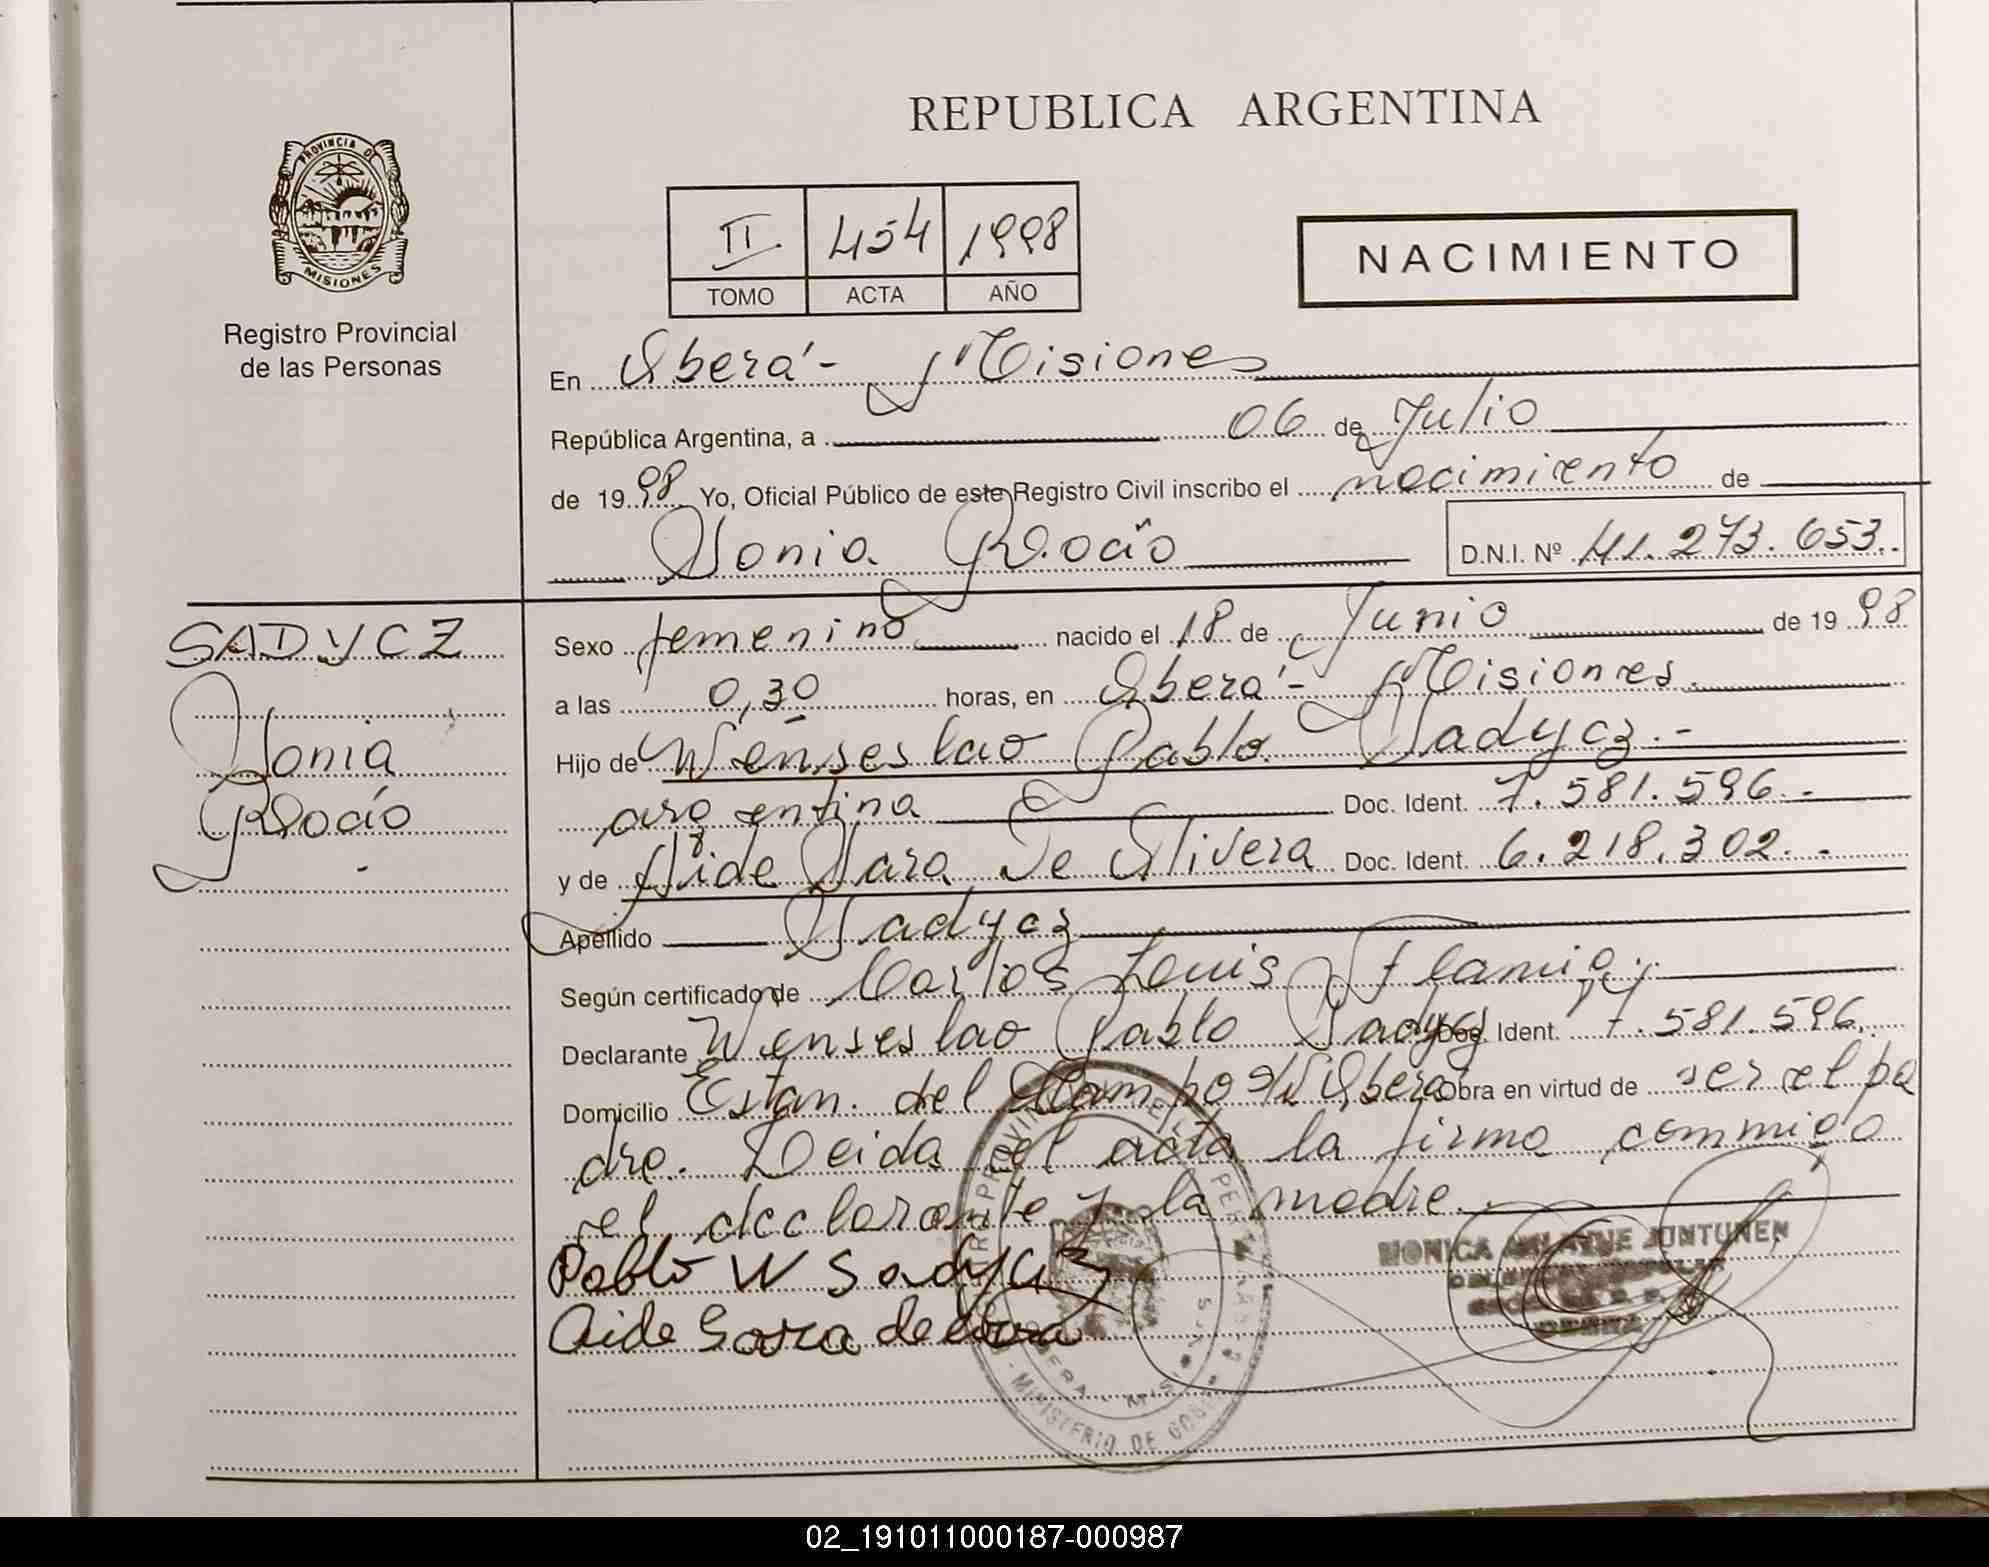 REPUBLICA ARGENTINA
PROVINCIA DE
MISIONES
Registro Provincial
de las Personas
II 454 1998
TOMO ACTA AÑO
NACIMIENTO
En Oberá - Misiones
República Argentina, a 06 de Julio
de 1998 Yo, Oficial Público de este Registro Civil inscribo el nacimiento de
Sonia Rocío D.N.I. Nº 41.273.653.
SADYCZ
Sonia
Rocío
Sexo femenino nacido el 18 de Junio de 1998
a las 0,30 horas, en Oberá - Misiones.
Hijo de Wenseslao Pablo Sadycz.-
argentina Doc. Ident. 7.581.596.-
y de Aide Sara De Olivera Doc. Ident. 6.218.302.-
Apellido Sadycz
Según certificado de Carlos Luis
Declarante Wenseslao Pablo Sadycz Doc. Ident. 7.581.596.
Domicilio Estan. del Campo Oberá Obra en virtud de ser el pa
dre. Leida el acta la firma conmigo
el declarante y la madre.
Pablo W Sadycz
MONICA JUNTUNEN
Aide Sara de
OBERA
MINISTERIO DE
02_191011000187-000987